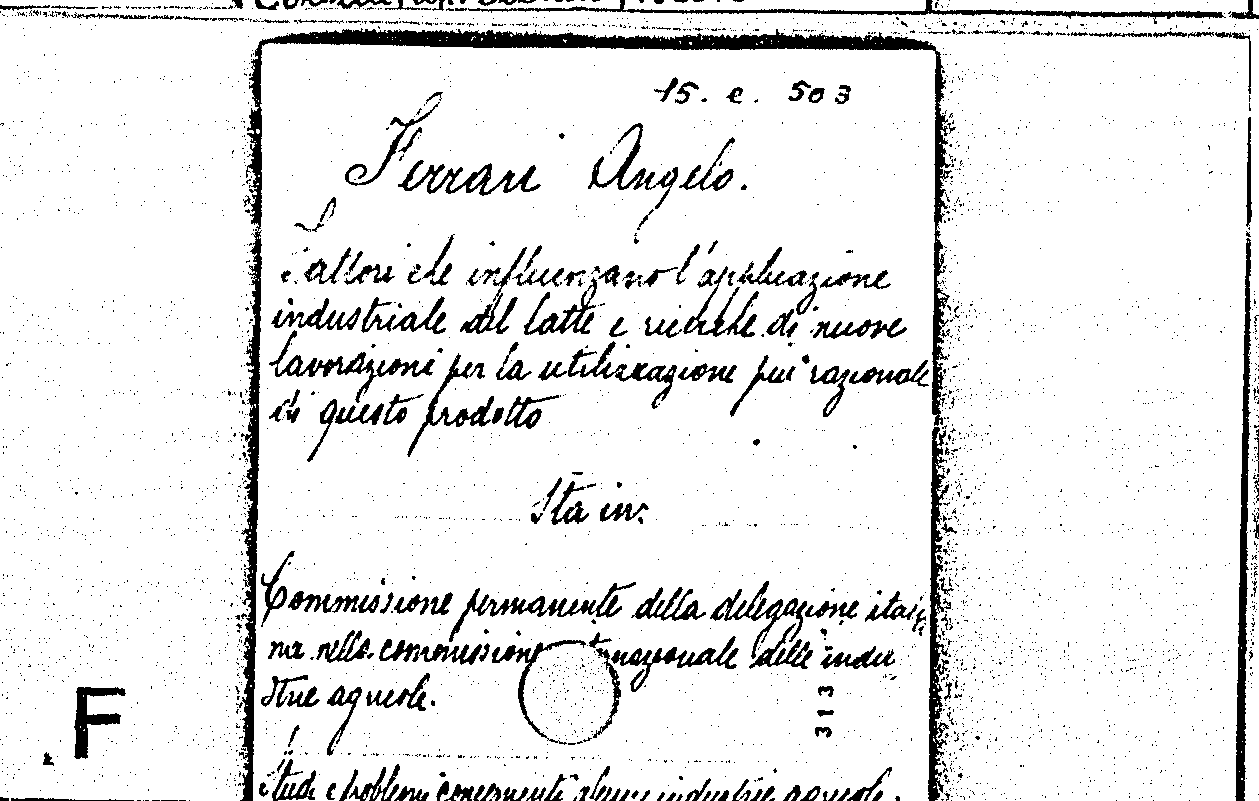 15. e. 503
Ferrari Angelo.
Fattori che influenzano l'applicazione
industriale del latte e ricerche di nuove
lavorazioni per la utilizzazione piu' razionale
di questo prodotto
Sta in:
Commissione permanente della delegazione italia
na nella commissione internazionale delle indu
strie agricole.
F
313
Studi e problemi concernenti alcune industrie agricole.